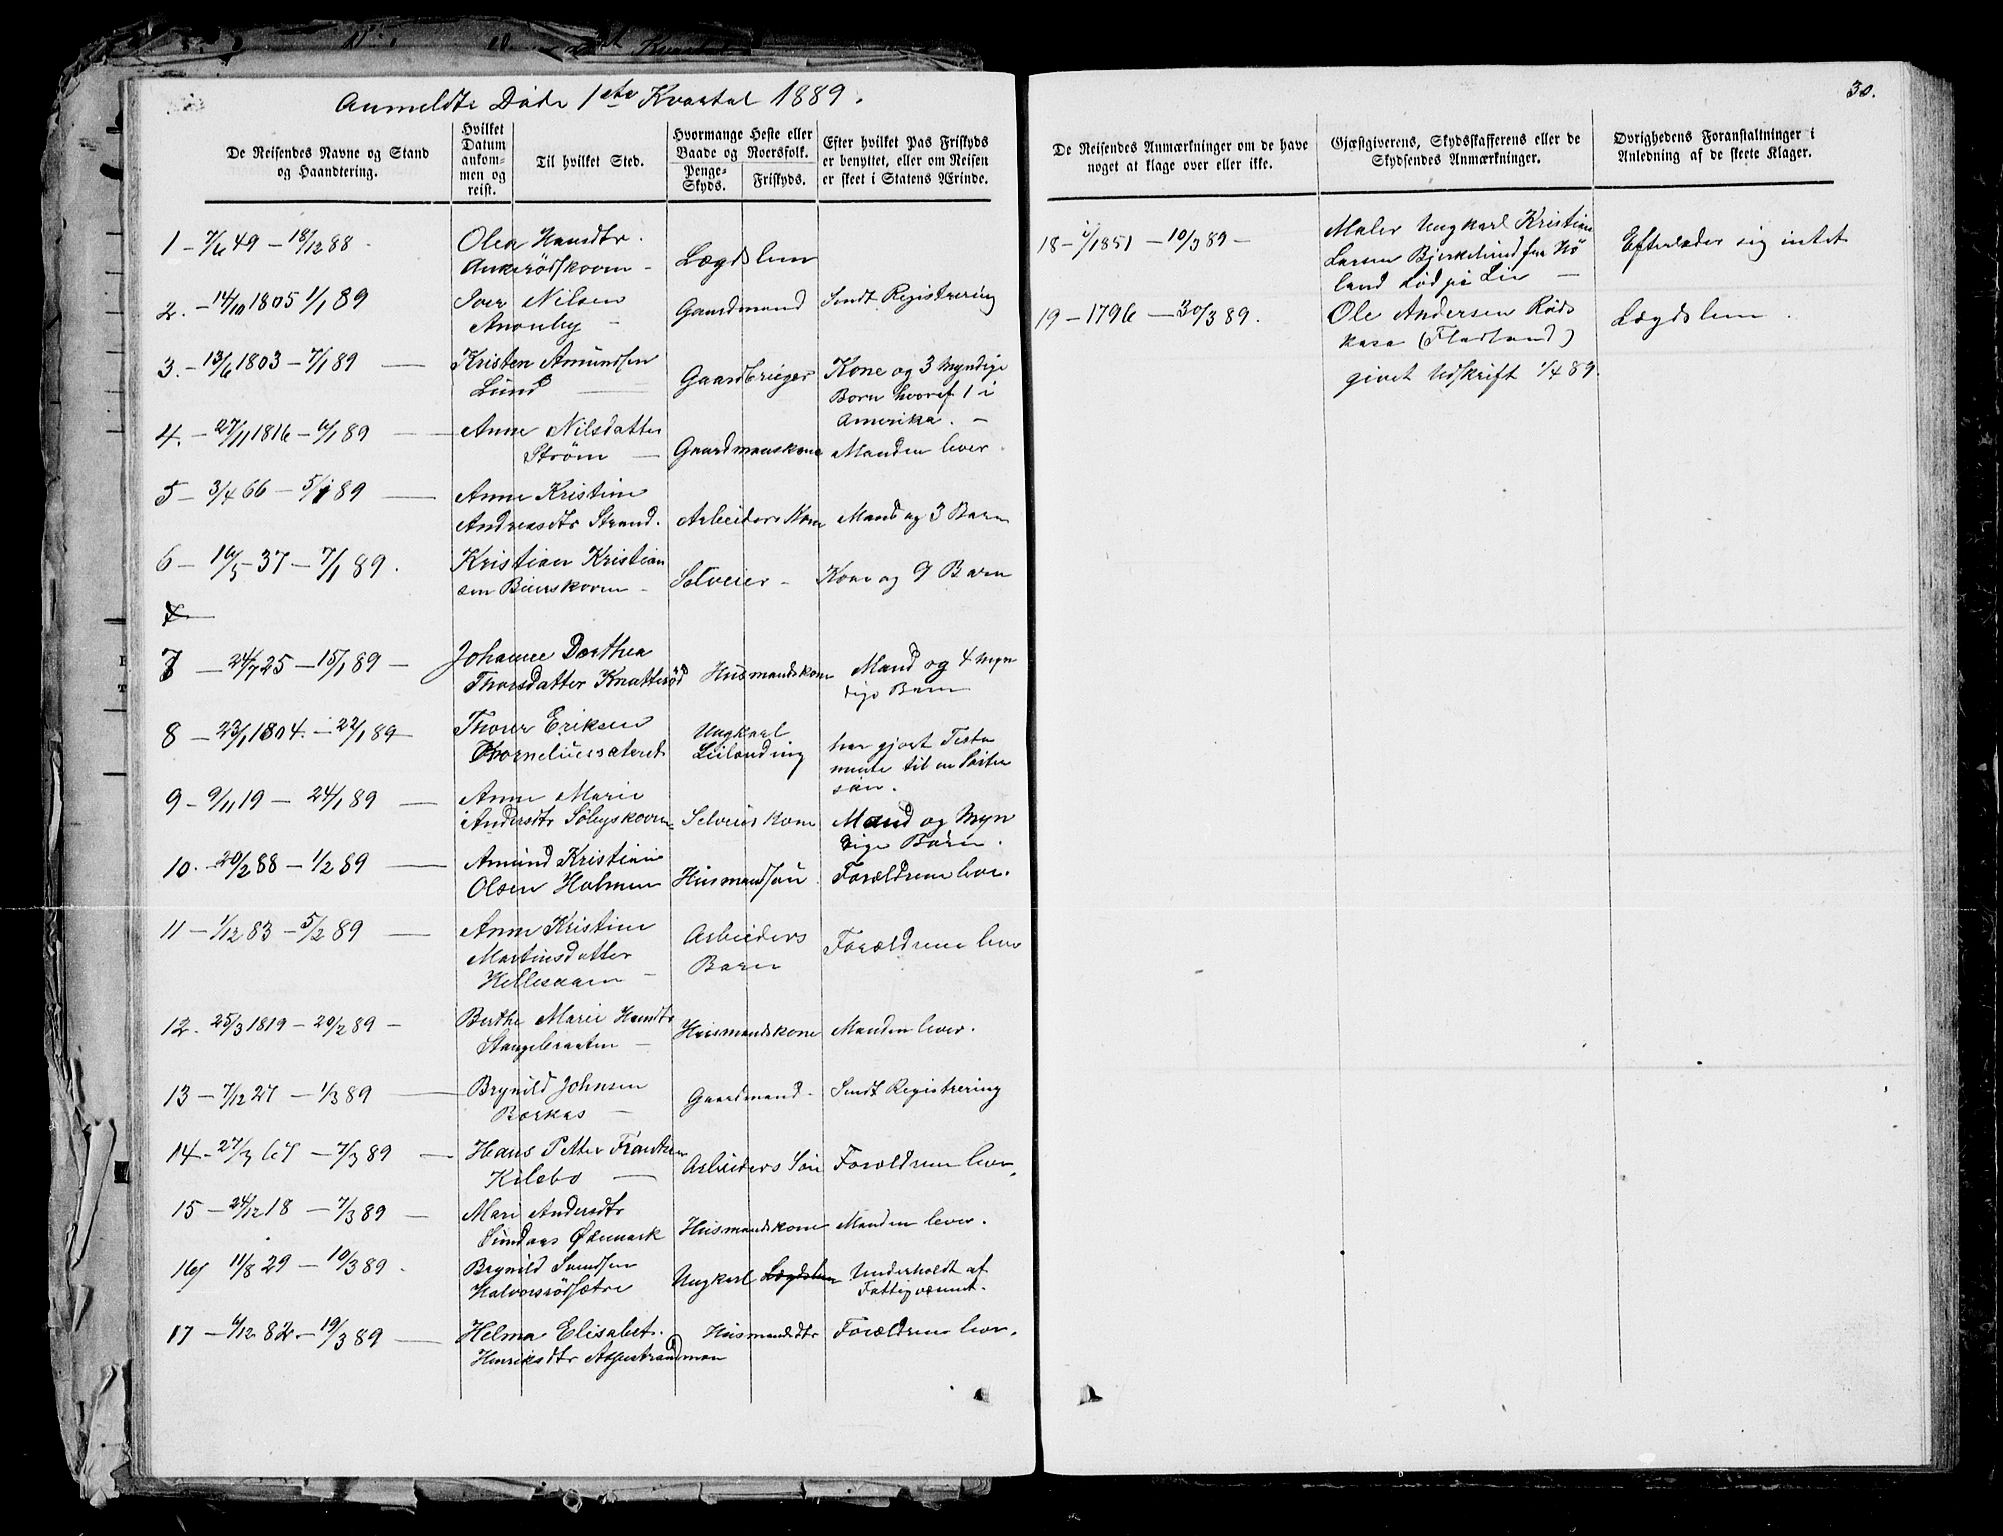 Anmeldte Døde 1ste Kvartal 1889.
De Reisendes Navne og Stand
og Haandtering.
Hvilket
Datum
ankom-
men og
reist.
Til hvilket Sted.
Hvormange Heste eller
Baade og Roersfolk.
Penge-
Skyds.
Friskyds.
Efter hvilket Pas Friskyds
er benyttet, eller om Reisen
er skeet i Statens Ærinde.
1 - 7/6 49 - 18/12 88 -
Olea Hansdtr.
Ankerødskoven -
Lægdslem
2. - 14/10 1805 1/1 89
Iver Nilsen
Anonby -
Gaardmand
Sendt Registrering
3. - 13/6 1803 - 7/1 89 -
Kristen Amundsen
Lund -
Gaardbruger
Kone og 3 Myndige
Born hvoraf 1 i
Amerika. -
4. - 27/11 1816 - 6/1 89 -
Anne Nilsdatter
Strøm -
Gaardmanskone
Manden lever.
5 - 3/4 66 - 5/1 89 -
Anne Kristine
Andreasdtr Strand.
Arbeiders Kone
Mand og 3 Barn
6 - 16/5 37 - 7/1 89.
Kristian Kristian
sen Buerskoven -
Selveier -
Kone og 9 Barn
7
7 - 24/7 25 - 15/1 89 -
Johanne Dorthea
Thorsdatter Knatterød
Husmandskone
Mand og 4 Myn
dige Barn
8 - 23/1 1804. - 22/1 89 -
Thorer Eriksen
Korneliussæteret
Ungkarl
Leilending
har gjort Testa
mente til en Søster
søn.
9 - 9/11 19 - 24/1 89 -
Anne Marie
Andersdtr Sobyskoven
Selveiers Kone
Mand og Myn
dige Børn.
10. - 20/2 88 - 1/2 89 -
Amund Kristian
Olsen Holmen
Husmandsøn
Forældrene lever.
11 - 1/12 83 - 5/2 89 -
Anne Kristine
Martinsdatter
Hellesaaen -
Arbeiders
Barn
Forældrene lever
12. 25/3 1819 - 20/2 89 -
Berthe Marie Hansdtr
Stangebraaten -
Husmandskone
Manden lever.
13 - 7/12 27 - 1/3 89 -
Brynild Johnsen
Børkas -
Gaardmand -
Sendt Registrering
14 - 27/3 67 - 7/3 89 -
Hans Petter Frantsen
Kilebo -
Arbeiders Søn
Forældrene lever.
15 - 24/12 18 - 7/3 89 -
Mari Andersdtr
Sundaas Ødemark
Husmandskone
Manden lever.
16 11/8 29 - 10/3 89.
Brynild Svendsen
Halvorsrødsætre
Ungkarl Lægdslem
Underholdt af
Fattigvæsnet.
17 - 6/12 82. - 19/3 89 -
Helma Elisabet.
Henriksdtr
Husmandsdtr
Forældrene lever.
30.
De Reisendes Anmærkninger om de have
noget at klage over eller ikke.
Gjæstgiverens, Skydsskafferens eller de
Skydsendes Anmærkninger.
Øvrighedens Foranstaltninger i
Anledning af de skeete Klager.
18 - 1851 - 10/3 89 -
Maler Ungkarl Kristian
Larsen Bjerkelund fra Hø
land død på Lie -
Efterlader sig intet
19 - 1796 - 30/3 89.
Ole Andersen Røds
kasa (Fladland)
Lægdslem.
givet Udskrift 1/4 89.